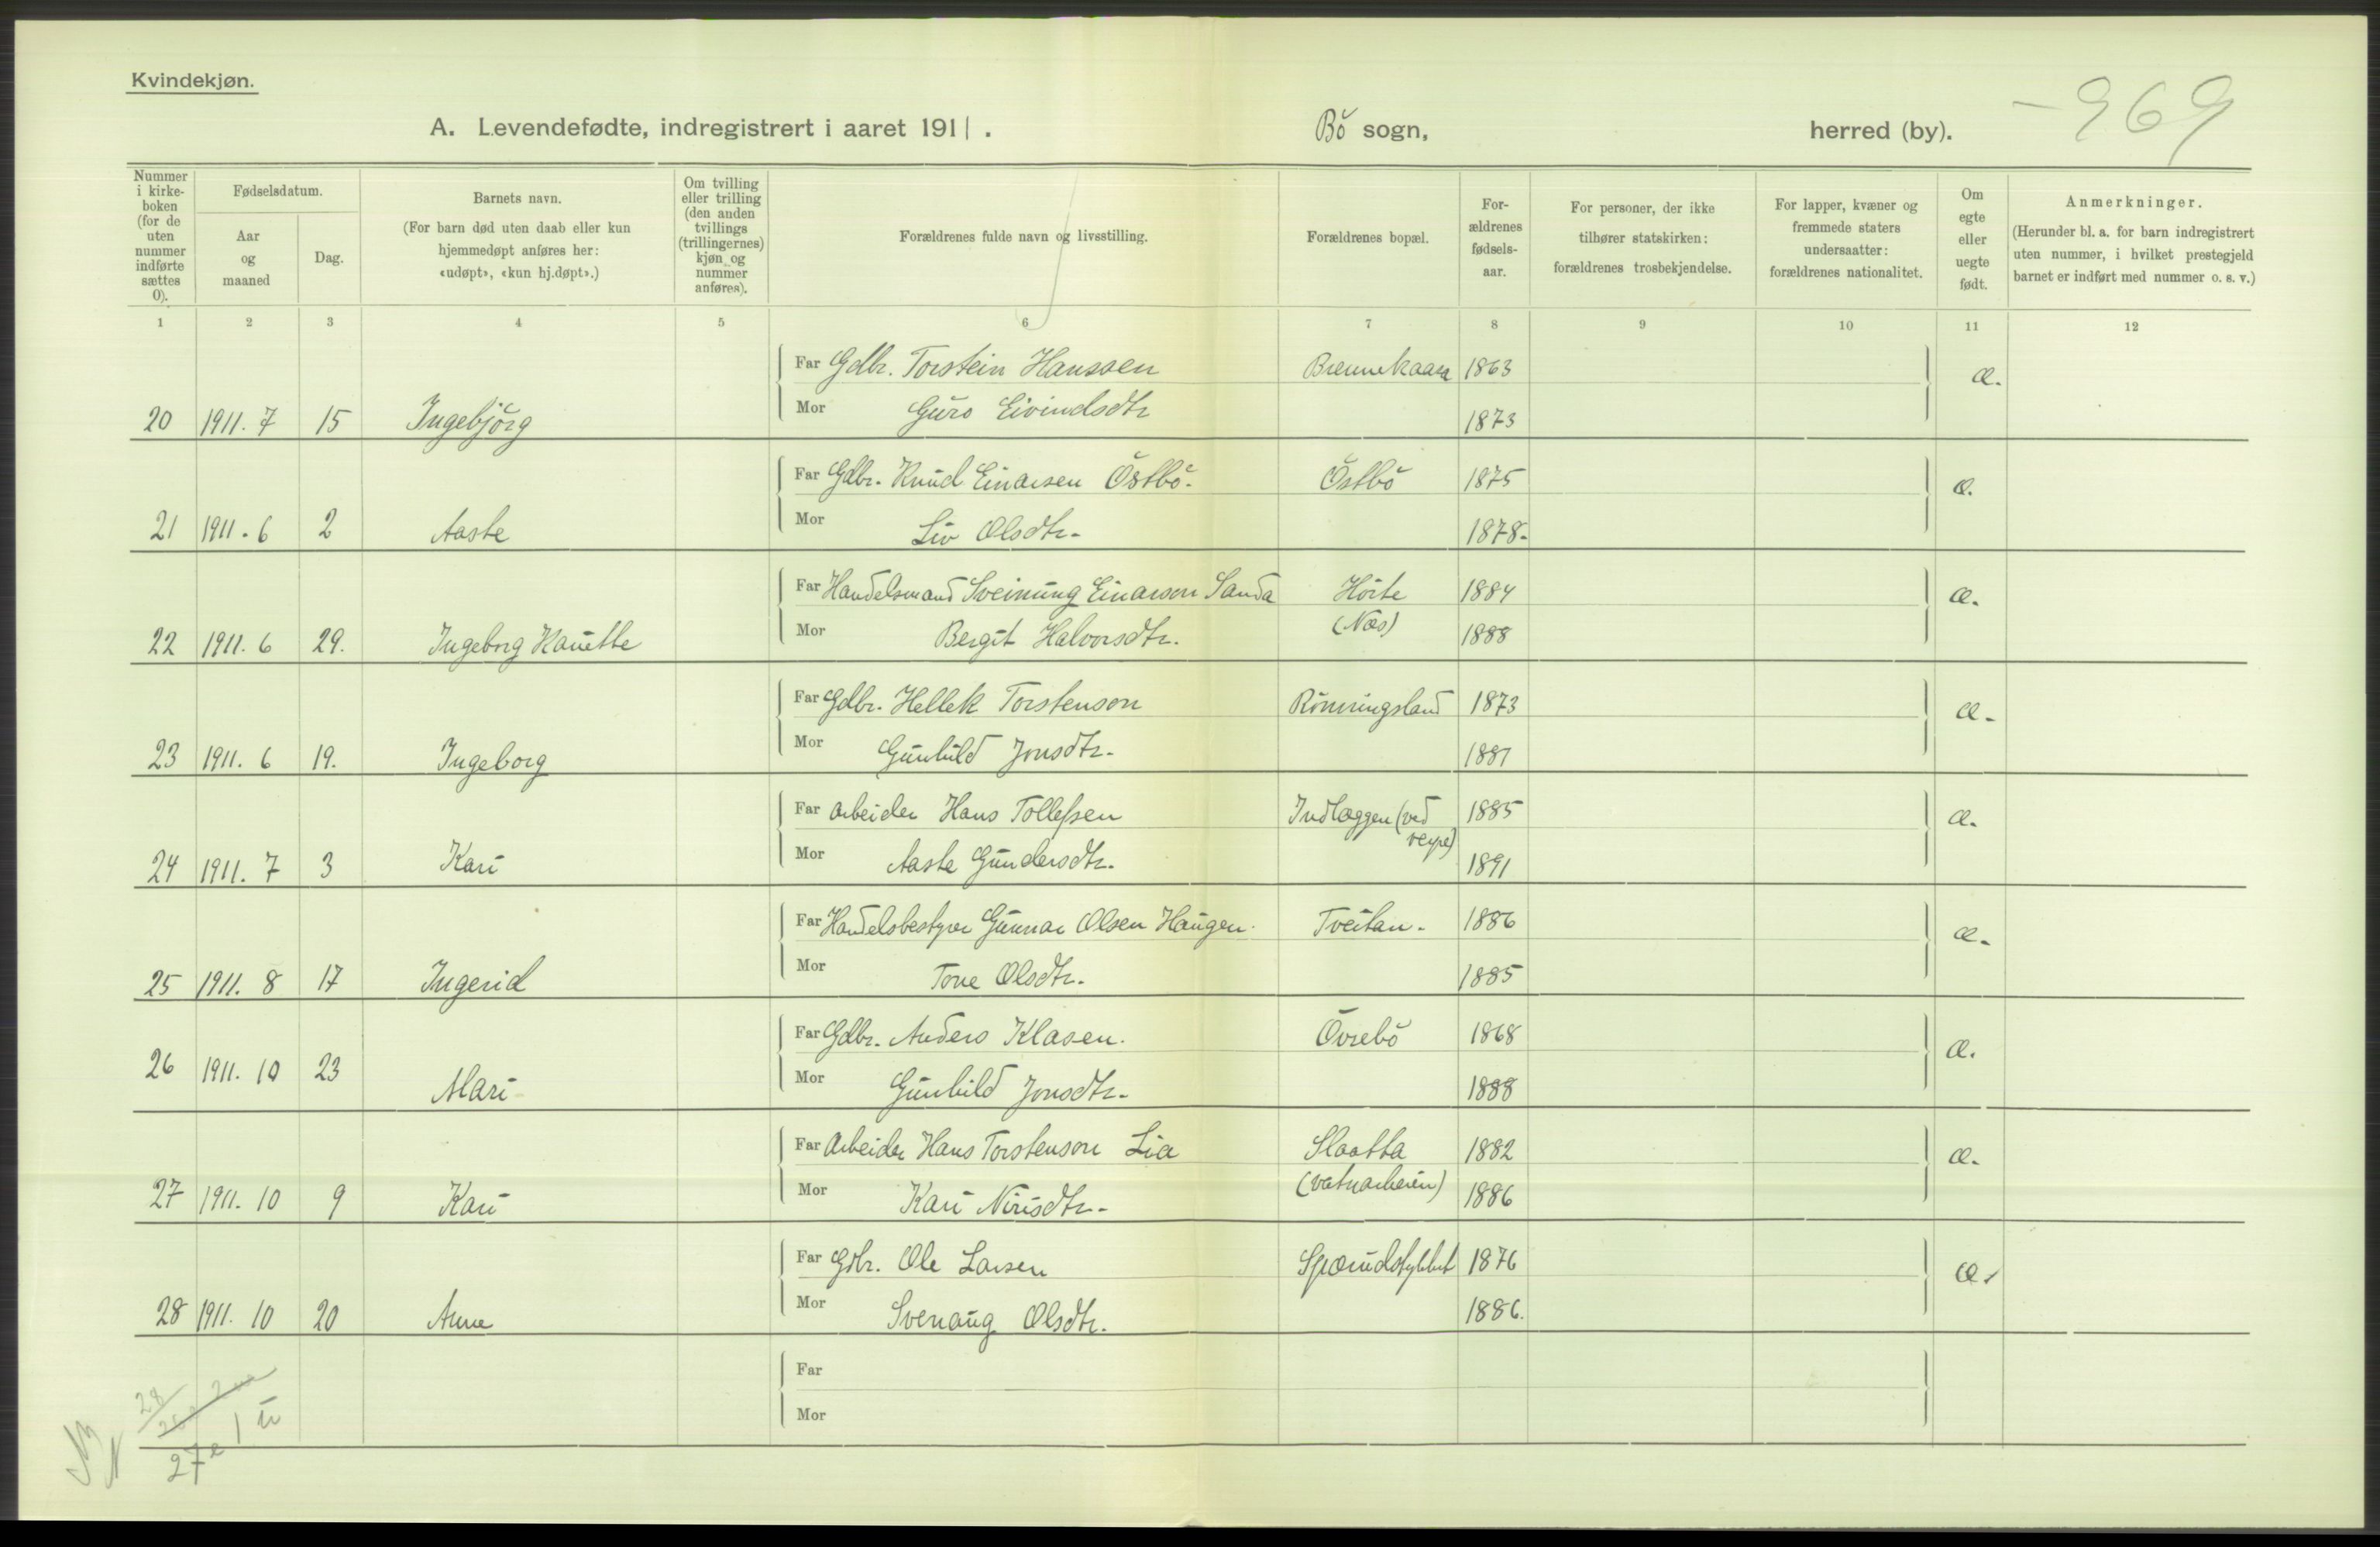 Kvindekjøn.
- 969
A. Levendefødte, indregistrert i aaret 1911. Bö sogn, herred (by).
Nummer i kirkeboken (for de uten nummer indførte sættes 0).
Fødselsdatum.
Aar og maaned
Dag.
Barnets navn.
(For barn død uten daab eller kun hjemmedøpt anføres her: «udøpt», «kun hj.døpt».)
Om tvilling eller trilling (den anden tvillings (trillingernes) kjøn og nummer anføres).
Forældrenes fulde navn og livsstilling.
Forældrenes bopæl.
For-ældrenes fødsels-aar.
For personer, der ikke tilhører statskirken: forældrenes trosbekjendelse.
For lapper, kvæner og fremmede staters undersaatter: forældrenes nationalitet.
Om egte eller uegte født.
Anmerkninger.
(Herunder bl. a. for barn indregistrert uten nummer, i hvilket prestegjeld barnet er indført med nummer o. s. v.)
1 2 3 4 5 6 7 8 9 10 11 12
Far Gdbr. Torstein Hanssen Brennekaasa 1863 æ.
20 1911. 7 15 Ingebjörg Mor Guro Eivindsdtr 1873
Far Gdbr. Knud Einarsen Östbö. Östbö 1875 æ.
21 1911. 6 2 Aaste Mor Liv Olsdtr. 1878.
Far Handelsmand Sveinung Einarson Sanda Hörte 1884 æ.
(Næs)
22 1911. 6 29. Ingeborg Hanette Mor Bergit Halvorsdtr. 1888
Far Gdbr. Hellek Torstenson Rönningsland 1873 æ.
23 1911. 6 19. Ingeborg Mor Gunhild Jonsdtr. 1881
Far Arbeider Hans Tollefsen Indlæggen (ved 1885 æ.
24 1911. 7 3 Kari Mor Aaste Gundersdtr. 1891
Far Handelsbestyrer Gunnar Olsen Haugen. Tveitan. 1886 æ.
25 1911. 8 17 Ingerid Mor Tone Olsdtr. 1885
Far Gdbr. Anders Klasen. Övrebö 1868 æ.
26 1911. 10 23 Mari Mor Gunhild Jonsdtr. 1888
Far Arbeider Hans Torstenson Lia Slaatta 1882 æ.
27 1911. 10 9 Kari Mor Kari Nirisdtr. 1886
Far Gdbr. Ole Larsen 1876 æ.
28 1911. 10 20 Anne Mor Svenaug Olsdtr. 1886.
Far
Mor
28
27 e 1 u